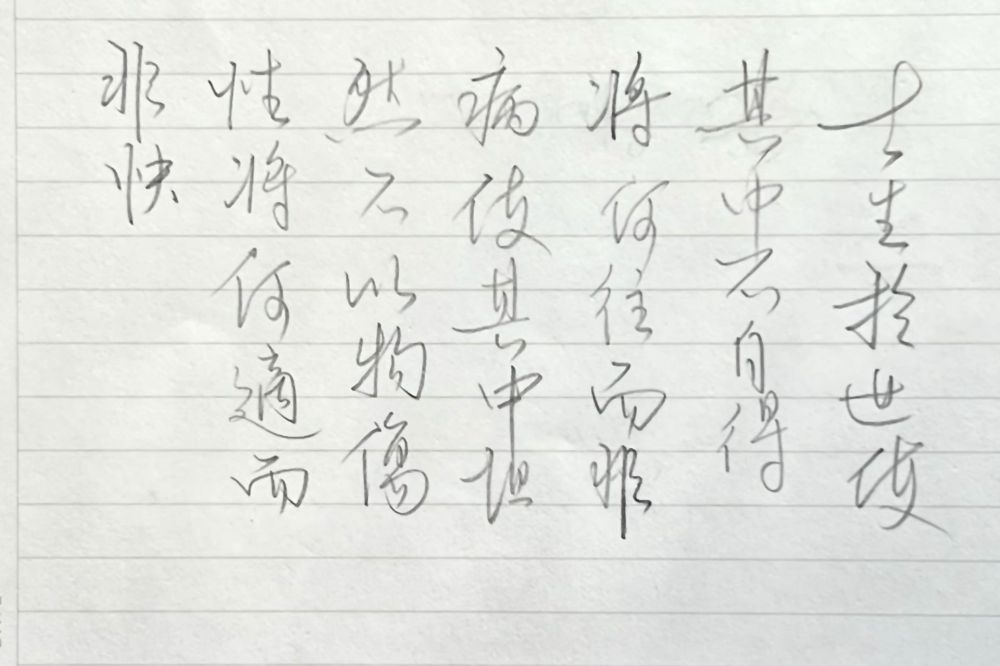 士生於世使
其中不自得
將何往而非
病使其中坦
然不以物傷
性將何適而
非快